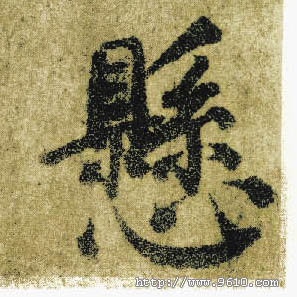 懸
http://www.9610.com